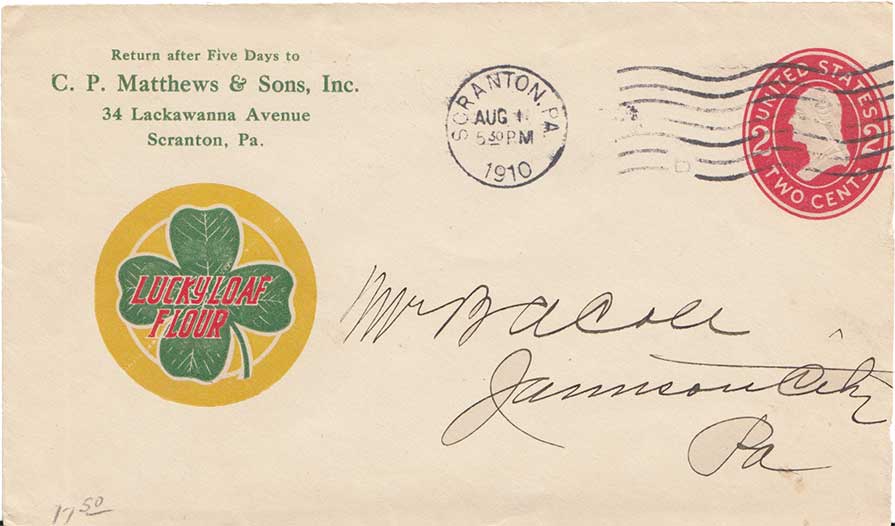 Return after Five Days to
C. P. Matthews & Sons, Inc.
34 Lackawanna Avenue
Scranton, Pa.
SCRANTON, PA.
AUG 1
5 30 PM
1910
UNITED STATES
2 2
TWO CENTS
LUCKY LOAF
FLOUR
Mr B A Cole
Jamison City
Pa
17 50